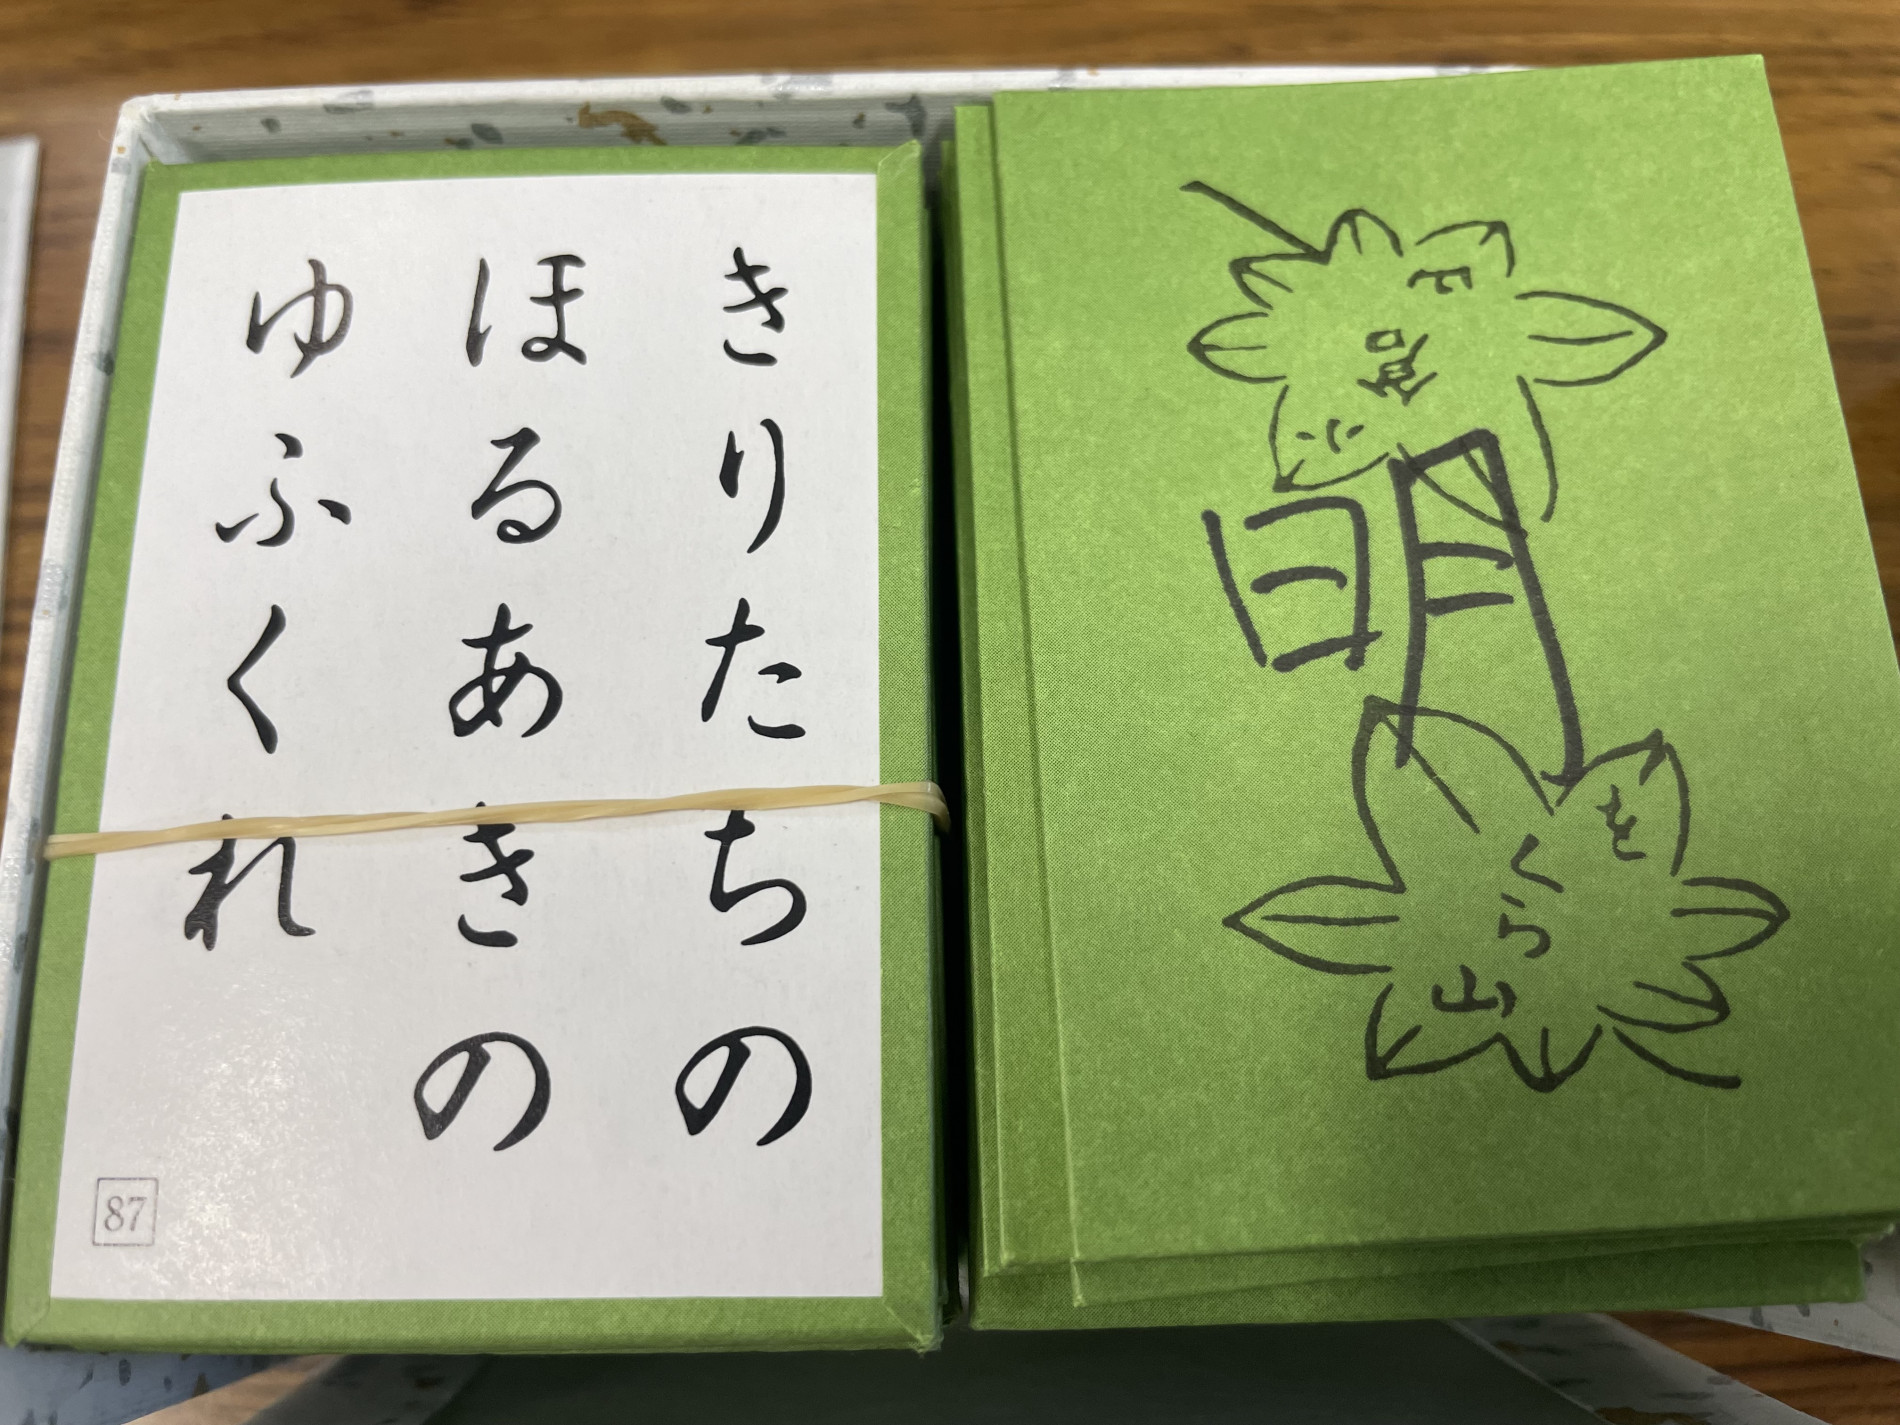 きりたちの
ほるあきの
ゆふくれ
87
明
さくら